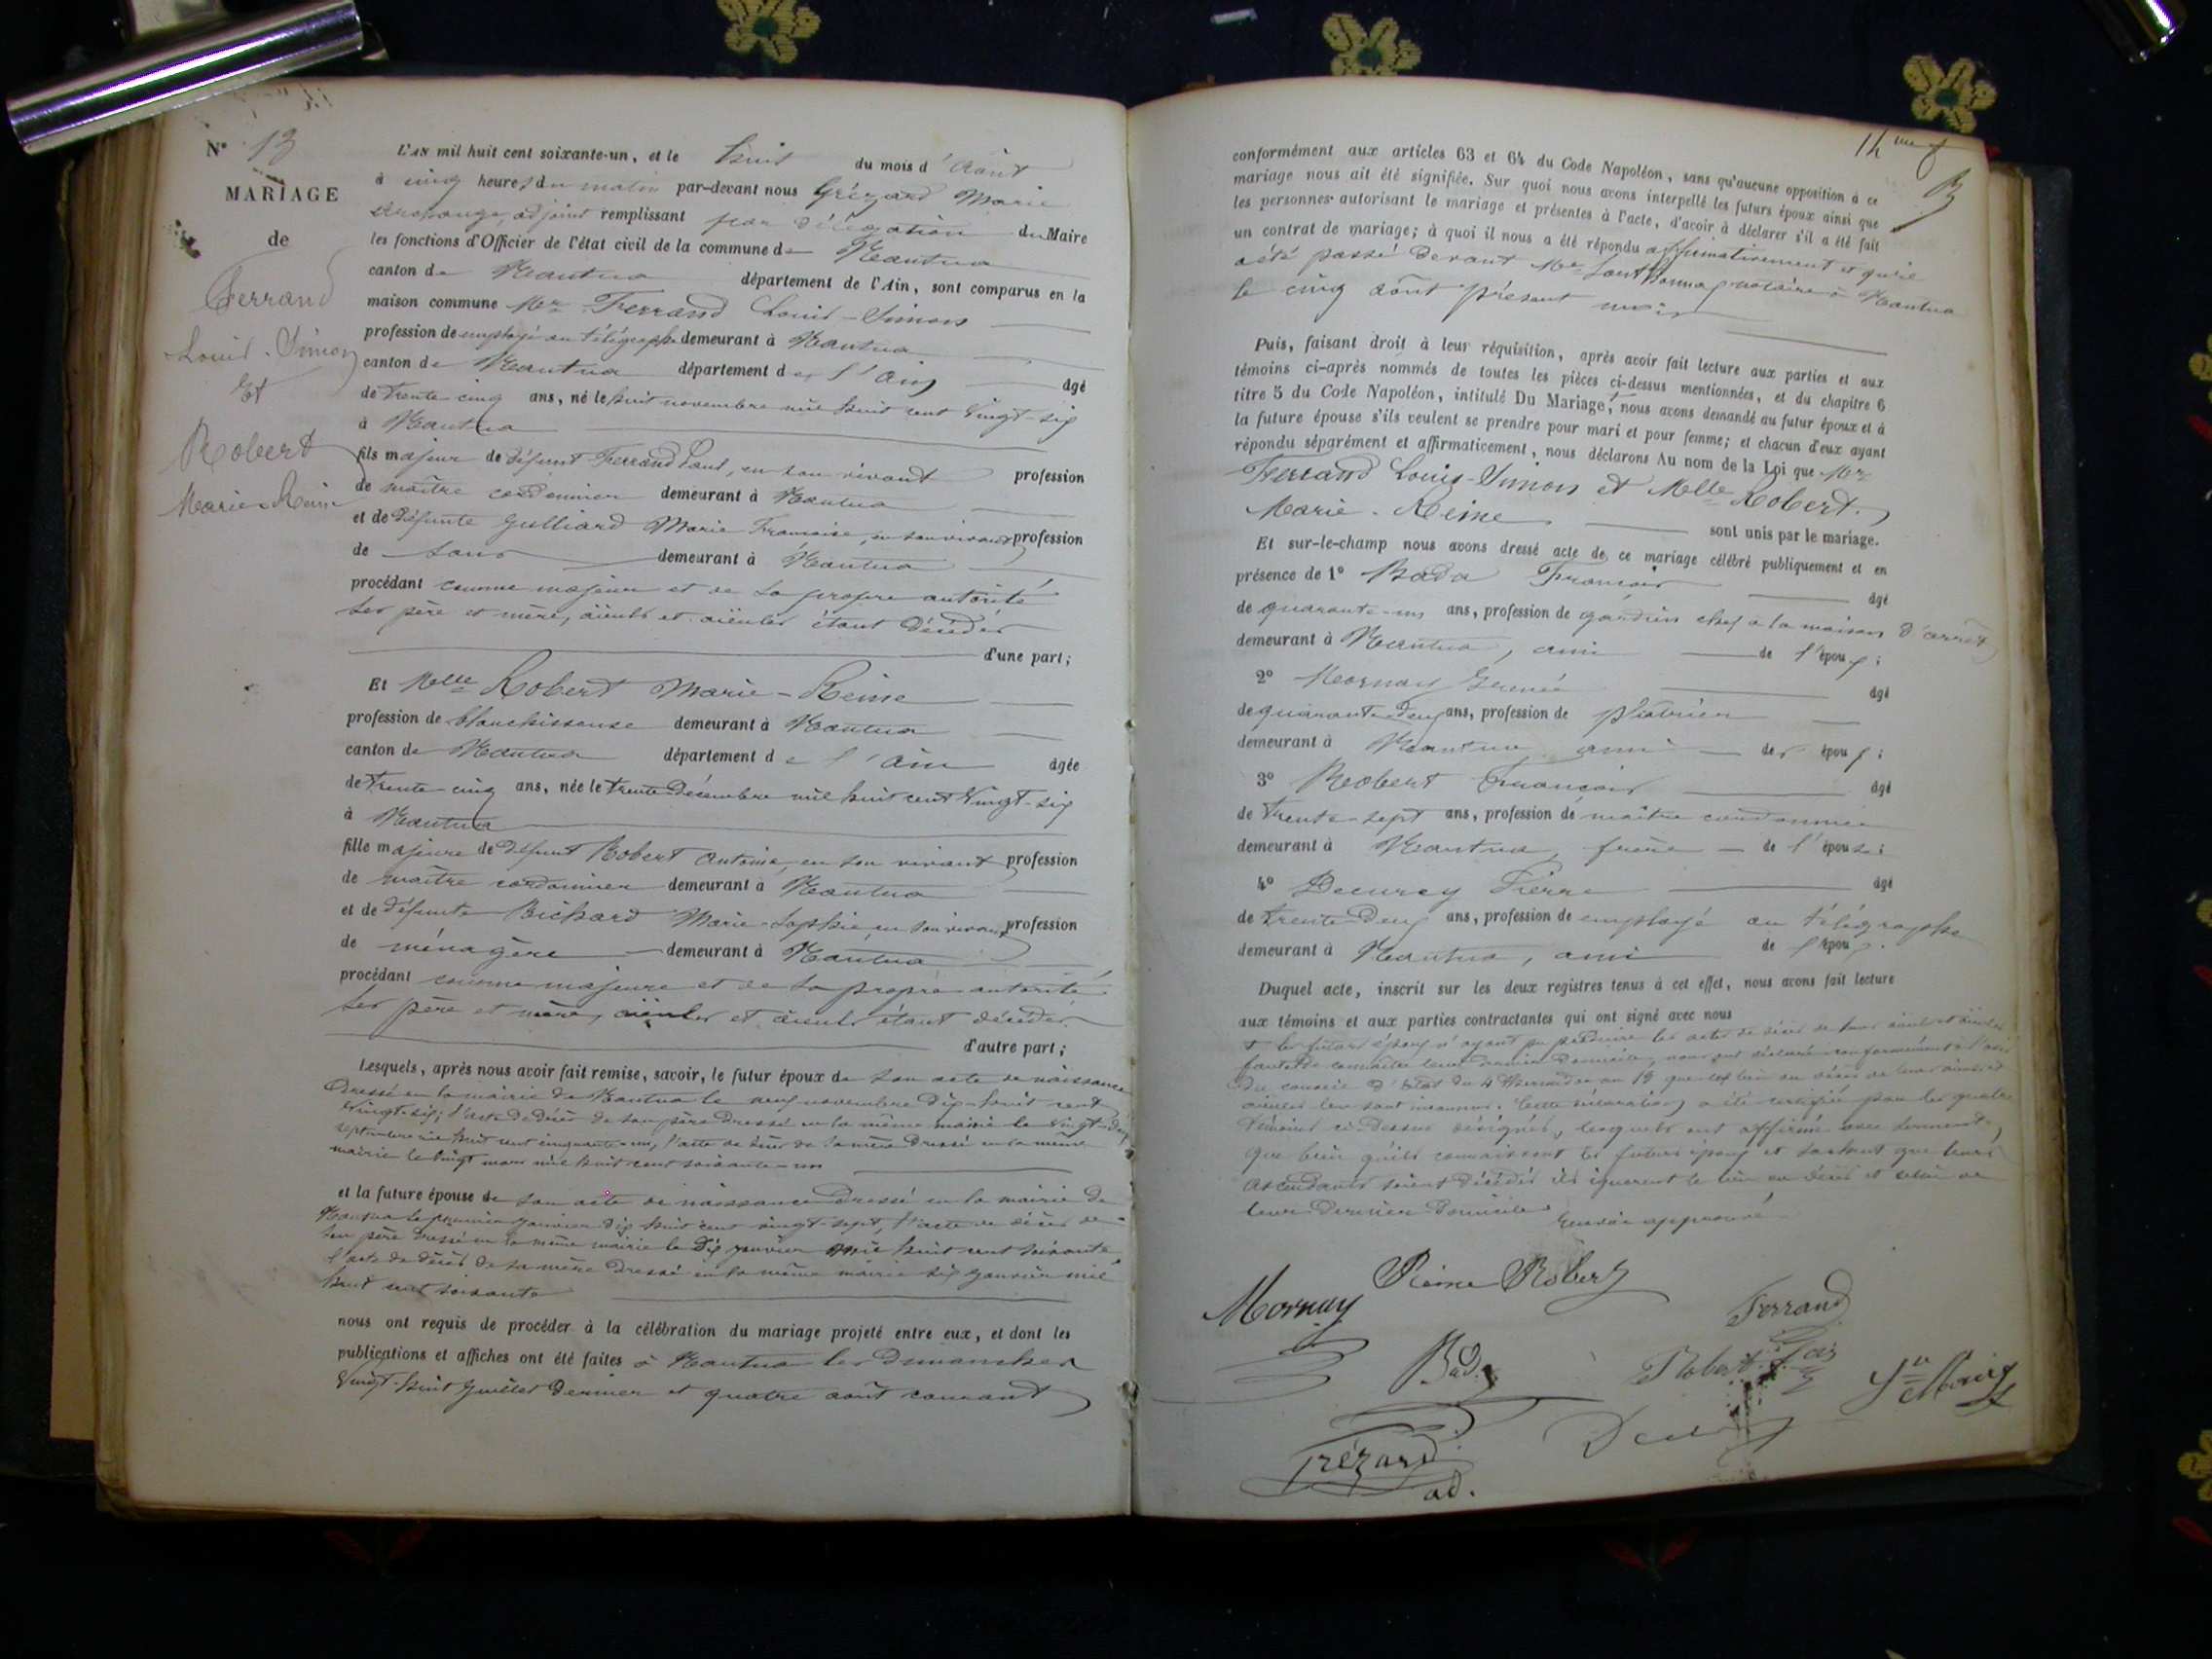 N° 13
MARIAGE
de
Ferrand
Louis-Simon
Et
Robert
Marie-Reine
L'AN mil huit cent soixante-un, et le huit du mois d'Août
à cinq heures du matin par-devant nous Grézard Marie
adjoint remplissant par délégation du Maire
les fonctions d'Officier de l'état civil de la commune de Nantua
canton de Nantua département de l'Ain, sont comparus en la
maison commune Mr Ferrand Louis-Simon
profession de employé au télégraphe demeurant à Nantua
canton de Nantua département de l'Ain âgé
de trente cinq ans, né le huit novembre mil huit cent vingt-six
à Nantua
fils majeur de défunt Ferrand Paul, en son vivant profession
de maître cordonnier demeurant à Nantua
et de défunte Gulliard Marie Françoise, en son vivant profession
de sans demeurant à Nantua
procédant comme majeur et de sa propre autorité
ses père et mère, aïeuls et aïeules étant décédés
d'une part;
Et Melle Robert Marie-Reine
profession de blanchisseuse demeurant à Nantua
canton de Nantua département de l'Ain âgée
de trente cinq ans, née le trente Décembre mil huit cent vingt-six
à Nantua
fille majeure de défunt Robert Antoine, en son vivant profession
de maître cordonnier demeurant à Nantua
et de défunte Richard Marie-Sophie, en son vivant profession
de ménagère demeurant à Nantua
procédant comme majeure et de sa propre autorité
ses père et mère, aïeules et aïeuls étant décédés
d'autre part;
Lesquels, après nous avoir fait remise, savoir, le futur époux de son acte de naissance
Dressé en la mairie de Nantua le neuf novembre dix-huit cent
vingt-six; l'acte de décès de son père dressé en la même mairie le vingt-deux
septembre mil huit cent cinquante-un, l'acte de décès de sa mère dressé en la même
mairie le vingt mars mil huit cent soixante-un
et la future épouse de son acte de naissance dressé en la mairie de
Nantua le premier janvier dix huit cent vingt-sept, l'acte de décès de
son père dressé en la même mairie le dix janvier mil huit cent soixante,
l'acte de décès de sa mère dressé en la même mairie six janvier mil
huit cent soixante
nous ont requis de procéder à la célébration du mariage projeté entre eux, et dont les
publications et affiches ont été faites à Nantua les Dimanches
vingt-huit juillet dernier et quatre août courant
14me f
conformément aux articles 63 et 64 du Code Napoléon, sans qu'aucune opposition à ce
mariage nous ait été signifiée. Sur quoi nous avons interpellé les futurs époux ainsi que
les personnes autorisant le mariage et présentes à l'acte, d'avoir à déclarer s'il a été fait
un contrat de mariage; à quoi il nous a été répondu affirmativement et qu'il
a été passé devant Me notaire à Nantua
le cinq août présent mois
Puis, faisant droit à leur réquisition, après avoir fait lecture aux parties et aux
témoins ci-après nommés de toutes les pièces ci-dessus mentionnées, et du chapitre 6
titre 5 du Code Napoléon, intitulé Du Mariage, nous avons demandé au futur époux et à
la future épouse s'ils veulent se prendre pour mari et pour femme; et chacun d'eux ayant
répondu séparément et affirmativement, nous déclarons Au nom de la Loi que Mr
Ferrand Louis-Simon et Melle Robert
Marie-Reine sont unis par le mariage.
Et sur-le-champ nous avons dressé acte de ce mariage célébré publiquement et en
présence de 1° Bada François âgé
de quarante-un ans, profession de gardien chef à la maison d'arrêt
demeurant à Nantua, ami de l'époux;
2° Mornay âgé
de quarante-deux ans, profession de plâtrier
demeurant à Nantua ami de l'époux;
3° Robert François âgé
de trente-sept ans, profession de maître cordonnier
demeurant à Nantua, frère de l'épouse;
4° Decurcy Pierre âgé
de trente-deux ans, profession de employé au télégraphe
demeurant à Nantua, ami de l'époux.
Duquel acte, inscrit sur les deux registres tenus à cet effet, nous avons fait lecture
aux témoins et aux parties contractantes qui ont signé avec nous
et les futurs époux n'ayant pu produire les actes de décès de leurs aïeuls et aïeules
faute de connaître leur dernier domicile, nous ont déclaré conformément à l'avis
du conseil d'état du 4 thermidor an 13 que le lieu du décès de leurs aïeuls et
aïeules leur sont inconnus. Cette déclaration a été certifiée par les quatre
témoins ci-dessus désignés, lesquels ont affirmé avec serment,
que bien qu'ils connaissent les futurs époux et sachent que leurs
ascendants soient décédés ils ignorent le lieu du décès et celui de
leur dernier domicile
Renvoi approuvé
Reine Robert
Mornay
Ferrand
Bada
Robert
Grézard
ad.